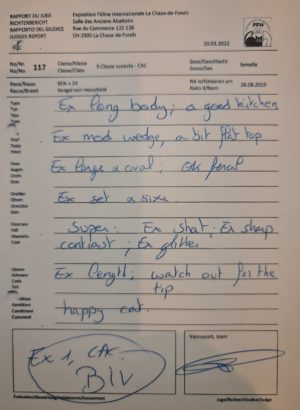 RAPPORT DU JUGE
RICHTERBERICHT
RAPPORTO DEL GIUDICE
JUDGES REPORT
Exposition Féline Internationale La Chaux-de-Fonds
Salle des Anciens Abattoirs
Rue du Commerce 122-126
CH-2300 La Chaux-de-Fonds
FFH
20.03.2022
No/Nr. 117
Classe/Klasse
Classe/Class
9 Classe ouverte - CAC
Sexe/Geschlecht
Sesso/Sex
femelle
Race/Rasse
Razza/Breed
BEN n 24
Bengal noir moucheté
Né le/Geboren am
Nato il/Born
26.08.2019
Type
Ex long body; a good
Tête
Ex modi wedge, a bit flat top
Yeux
Augen
Occhi
Eyes
Ex large & oval;
Oreilles
Ohren
Ears
Ex set & size
Super: Ex shot; Ex sharp
contrast; Ex glitter.
Tail
Ex length; watch out for the
tip
Kondition
Condizione
Comment
happy cat.
Ex 1, CAC
BIV
Vanwassch, Joeri
Juge/Richter/Giudice/Judge